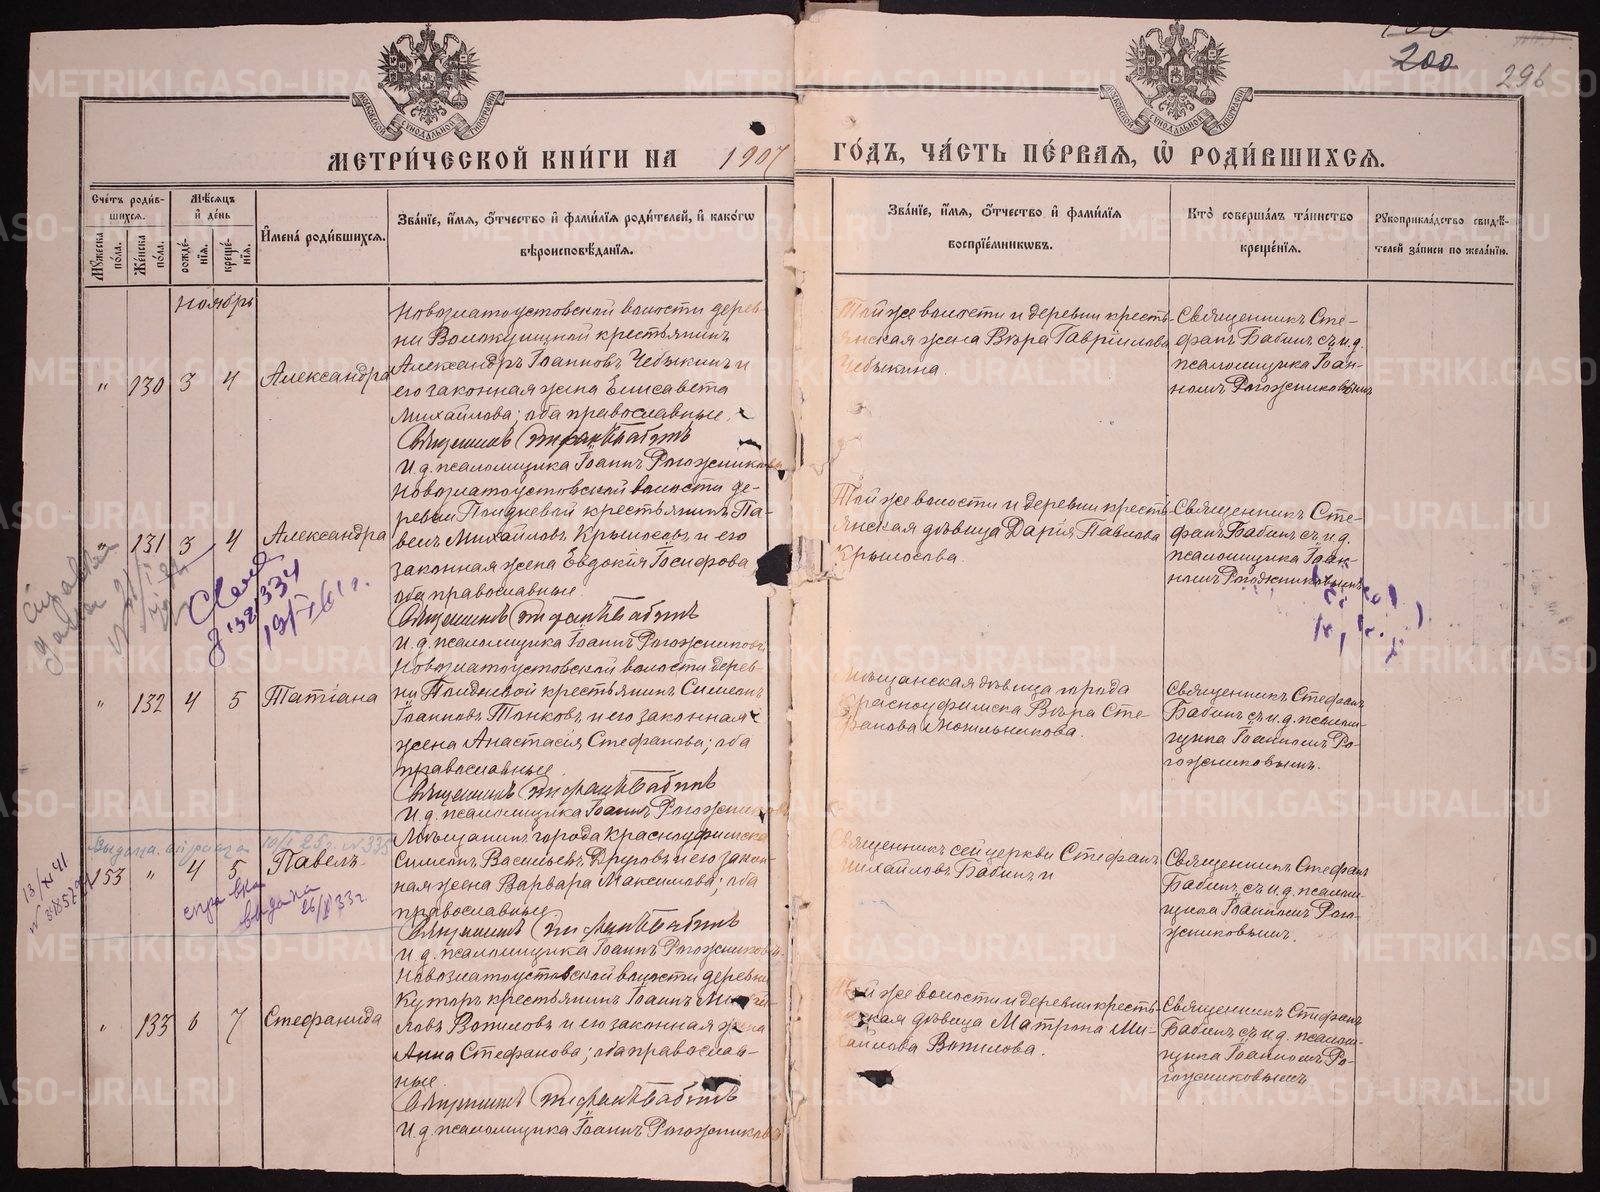 200
296
МЕТРИ́ЧЕСКОЙ КНИ́ГИ НА 1907 ГО́ДЪ, ЧА́СТЬ ПЕ́РВАЯ, Ѡ҆ РОДИ́ВШИХСѦ.
Сче́тъ роди́в-
шихся.
Му́жеска по́ла.
Же́нска по́ла.
Мѣ́сяцъ
и҆ де́нь
рожде́-
нїя.
креще́-
нїя.
И҆мена̀ роди́вшихся.
Зва́нїе, и҆́мя, ѻ҆́тчество и҆ фами́лїя роди́телей, и҆ како́гѡ
вѣроисповѣ́данїя.
Зва́нїе, и҆́мя, ѻ҆́тчество и҆ фами́лїя
воспрїе́мниковъ.
Кто̀ соверша́лъ та́инство
креще́нїя.
Рꙋкоприкла́дство свидѣ́-
телей за́писи по жела́нїю.
Ноябрь
„ 130 3 4 Александра
Новозлатоустовской волости дерев-
ни Волокушиной крестьянинъ
Александръ Іоанновъ Чебыкинъ и
его законная жена Елисавета
Михайлова; оба православные.
Священникъ Стефанъ Бабинъ
И.д. псаломщика Іоаннъ Рогожниковъ
Той же волости и деревни кресть-
янская жена Вѣра Гавріилова
Чебыкина.
Священникъ Сте-
фанъ Бабинъ съ и.д.
псаломщика Іоан-
номъ Рогожниковымъ
„ 131 3 4 Александра
Новозлатоустовской волости де-
ревни крестьянинъ Па-
велъ Михайловъ Крылосовъ и его
законная жена Евдокія Іосифова
оба православные
Священникъ Стефанъ Бабинъ
И.д. псаломщика Іоаннъ Рогожниковъ
Той же волости и деревни кресть-
янская дѣвица Дарія Павлова
Крылосова.
Священникъ Сте-
фанъ Бабинъ съ и.д.
псаломщика Іоан-
номъ Рогожниковымъ
„ 132 4 5 Татіана
Новозлатоустовской волости дерев-
ни крестьянинъ Симеонъ
Іоанновъ Тонковъ и его законная
жена Анастасія Стефанова; оба
православные.
Священникъ Стефанъ Бабинъ
И.д. псаломщика Іоаннъ Рогожниковъ
Мѣщанская дѣвица города
Красноуфимска Вѣра Сте-
фанова Мотыльникова.
Священникъ Стефанъ
Бабинъ съ и.д. псалом-
щика Іоанномъ Ро-
гожниковымъ.
Выдана справка 10/II 25 г. № 335
153 „ 4 5 Павелъ
справка
выдана
33 г.
Мѣщанинъ города Красноуфимска
Симеонъ Васильевъ Друговъ и его закон-
ная жена Варвара Максимова; оба
православные
Священникъ Стефанъ Бабинъ
И.д. псаломщика Іоаннъ Рогожниковъ.
Священникъ сей церкви Стефанъ
Михайловъ Бабинъ и
Священникъ Стефанъ
Бабинъ, съ и.д. псалом-
щика Іоанномъ Рого-
жниковымъ.
„ 133 6 7 Стефанида
Новозлатоустовской волости деревни
крестьянинъ Іоаннъ Михай-
ловъ Вопиловъ и его законная жена
Анна Стефанова; оба православ-
ные.
Священникъ Стефанъ Бабинъ
И.д. псаломщика Іоаннъ Рогожниковъ
Той же волости и деревни кресть-
янская дѣвица Матрона Ми-
хайлова Вопилова.
Священникъ Стефанъ
Бабинъ съ и.д. псалом-
щика Іоанномъ Ро-
гожниковымъ
METRIKI.GASO-URAL.RU